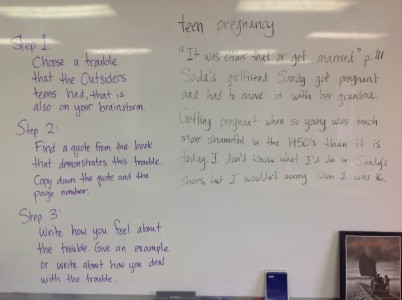 Step 1:
Choose a trouble
that the Outsiders
teens had, that is
also on your brainstorm.
Step 2:
Find a quote from the book
that demonstrates this trouble.
Copy down the quote and the
page number.
Step 3:
Write how you feel about
the trouble. Give an example
or write about how you deal
with the trouble.
teen pregnancy
"It was either that or get married." p. 111
Soda's girlfriend Sandy got pregnant
and had to move in with her grandma.
Getting pregnant when so young was much
more shameful in the 1950's than it is
today. I don't know what I'd do in Sandy's
shoes, but I wouldn't marry when I was 16.